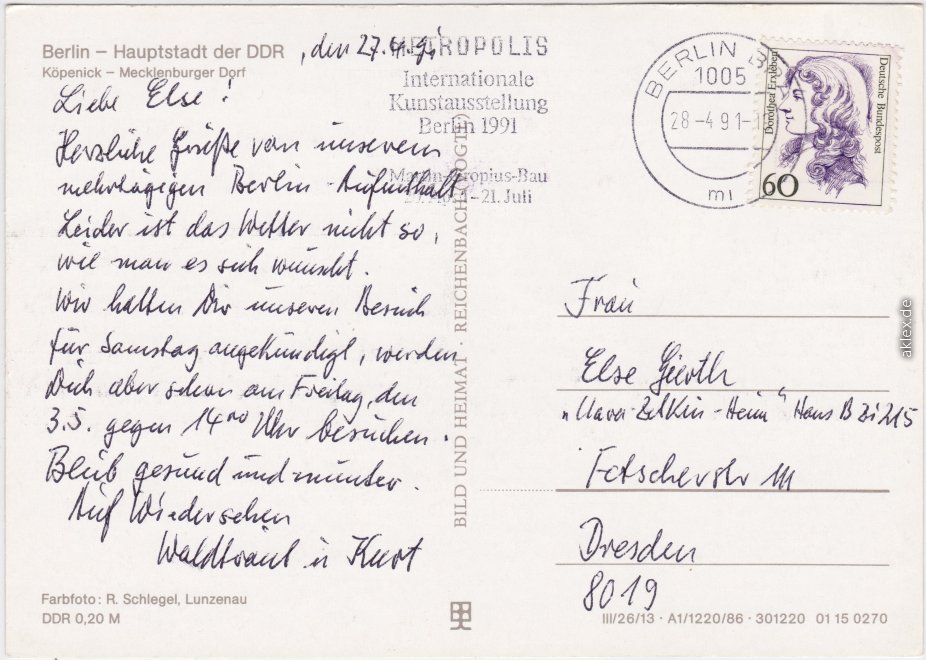 Berlin – Hauptstadt der DDR
Köpenick – Mecklenburger Dorf
, den 27.4.91
Liebe Else!
Herzliche Grüße von unserem
mehrtägigen Berlin-Aufenthalt.
Leider ist das Wetter nicht so,
wie man es sich wünscht.
Wir hatten Dir unseren Besuch
für Samstag angekündigt, werden
Dich aber schon am Freitag, den
3.5. gegen 14oo Uhr besuchen.
Bleib gesund und munter.
Auf Wiedersehen
Waldtraut u Kurt
Farbfoto: R. Schlegel, Lunzenau
DDR 0,20 M
BILD UND HEIMAT · REICHENBACH (VOGTL)
METROPOLIS
Internationale
Kunstausstellung
Berlin 1991
Martin-Gropius-Bau
April–21. Juli
BERLIN
1005
28-4 91-1
mi
Dorothea Erxleben
Deutsche Bundespost
60
Frau
Else
"Clara-Zetkin-Heim" Haus B Zi 215
Fetscherstr 111
Dresden
8019
III/26/13 · A1/1220/86 · 301220 01 15 0270
aklex.de